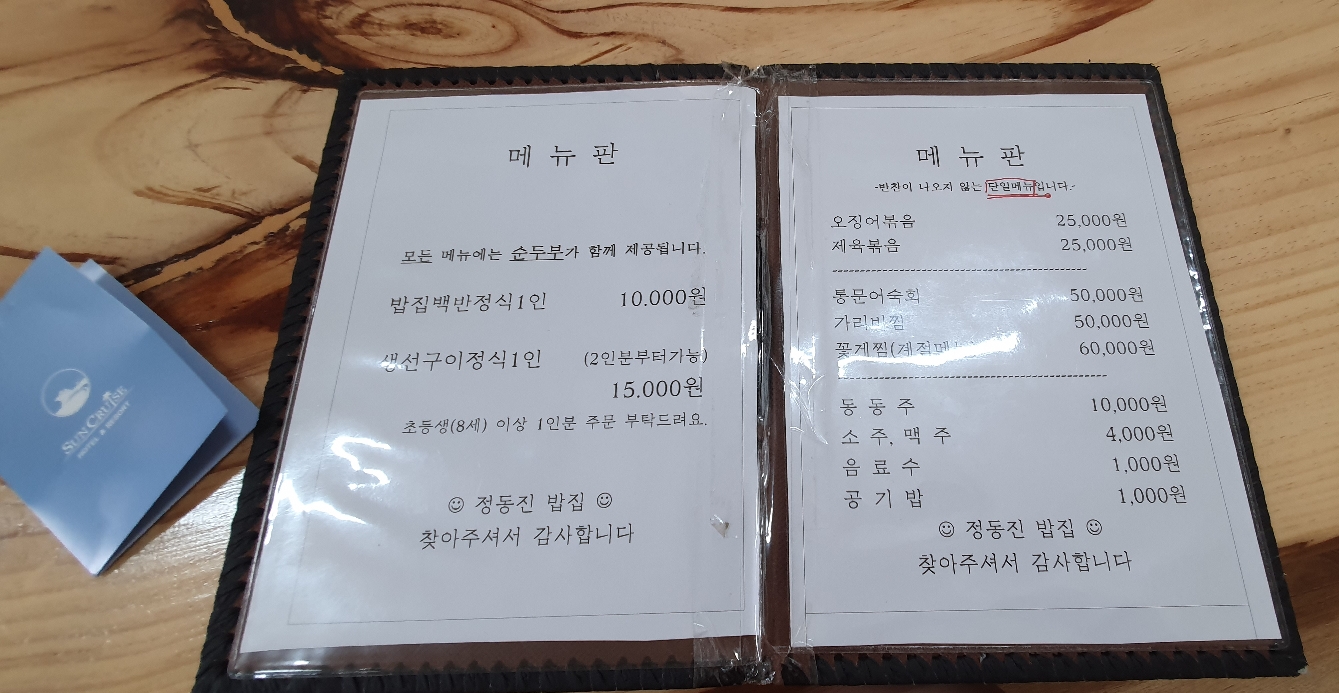 메 뉴 판
모든 메뉴에는 순두부가 함께 제공됩니다.
밥집백반정식1인 10.000원
생선구이정식1인 (2인분부터가능)
15.000원
초등생(8세) 이상 1인분 주문 부탁드려요.
☺ 정동진 밥집 ☺
찾아주셔서 감사합니다
메 뉴 판
-반찬이 나오지 않는 단일메뉴입니다.-
오징어볶음 25,000원
제육볶음 25,000원
통문어숙회 50,000원
가리비찜 50,000원
꽃게찜(계절메뉴) 60,000원
동 동 주 10,000원
소 주, 맥 주 4,000원
음 료 수 1,000원
공 기 밥 1,000원
☺ 정동진 밥집 ☺
찾아주셔서 감사합니다
SUN CRUISE
HOTEL & RESORT